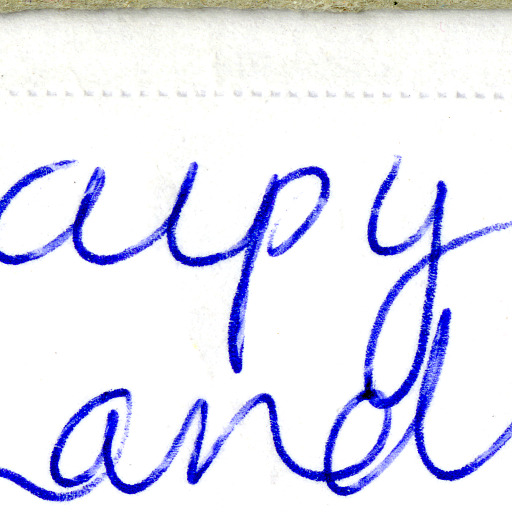 aipy
and